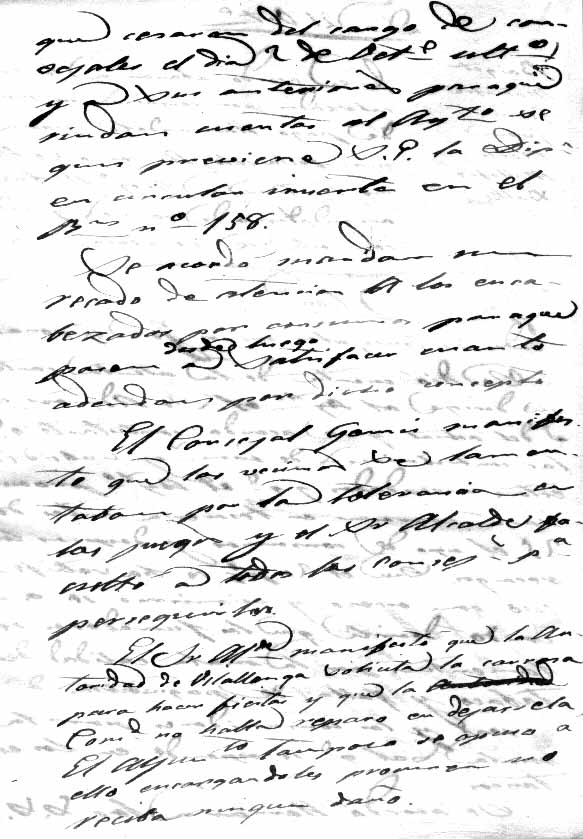 que cesaron del cargo de con-
sejales el dia 2 de Oct.e ult.o
y a sus anteriores para que
rindan cuentas al Ayt.o se
gun previene S.E. la Dip.n
en circular inserta en el
B.n n.o 158.
Se acordó mandar un
recado de atencion a los enca-
bezados por consumos para que
pasen a desde luego satisfacer cuanto
adeudan por dicho concepto
El Consejal Garcia manifes-
to que los vecinos se lamen-
taban por la tolerancia en
los juegos y el Sr Alcalde fa
cultó a todos los consej.s p.a
perseguirlos.
El Sr Alc.de manifestó que la Au
toridad de Vilallonga solicita la carroza
para hacer fiestas y que la
Comi.n no halla reparo en dejarsela
El Ayun.to tampoco se opuso a
ello encargandoles procuren no
reciba ningun daño.